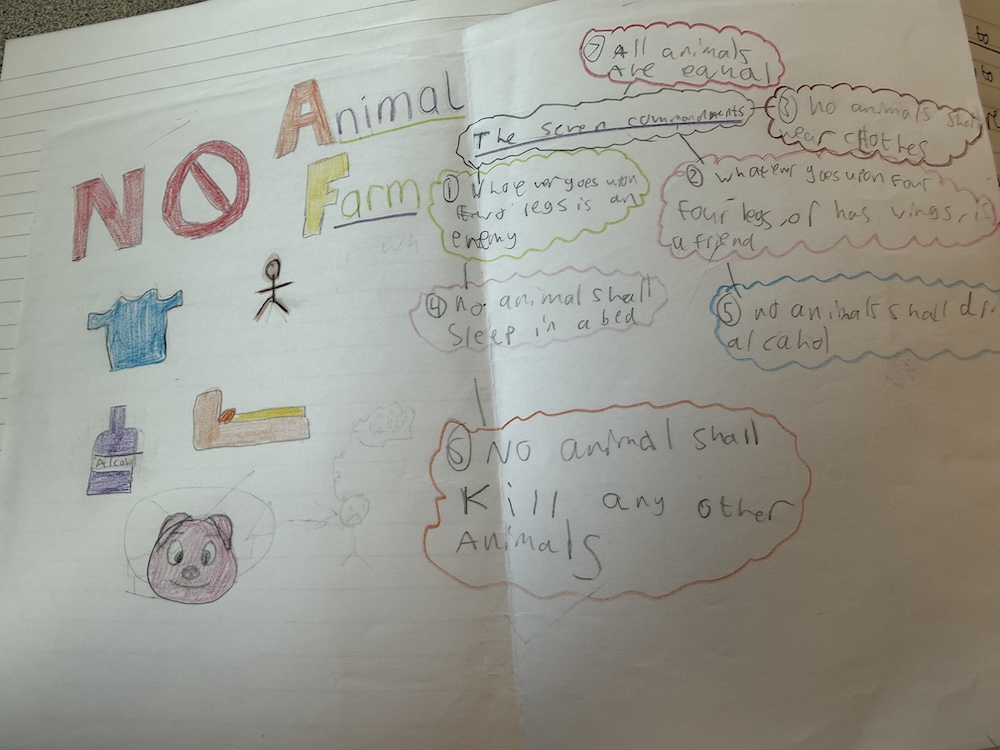 Animal
Farm
NO
Alcohol
The seven commandments
① Whoever goes upon
two legs is an
enemy
② whatever goes upon four
four legs, of has wings, is
a friend
③ no animals shall
wear clothes
④ no animal shall
Sleep in a bed
⑤ no animals shall
alcahol
⑥ NO animal shall
Kill any other
Animals
⑦ All animals
Are equal
wh